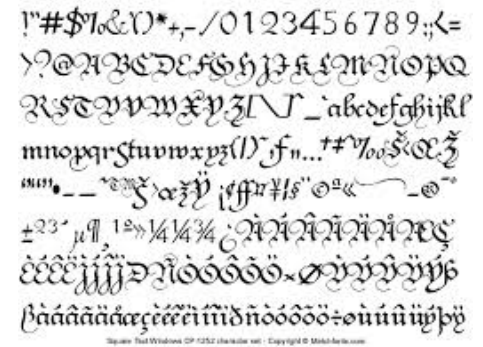 !"#$%&'()*+,-/0123456789:;<=
>?@ABCDEFGHIJKLMNOPQ
RSTUVWXYZ[\]^_`abcdefghijkl
mnopqrstuvwxyz{|}~ƒ„…†‡ˆ‰Š‹ŒŽ
‘’“”•–—˜™š›œžŸ ¡¢£¤¥¦§¨©ª«¬-®¯°
±²³´µ¶¸¹º»¼½¾¿ÀÁÂÃÄÅÆÇ
ÈÉÊËÌÍÎÏÐÑÒÓÔÕÖ×ØÙÚÛÜÝÞ
ßàáâãäåæçèéêëìíîïðñòóôõö÷øùúûüýþÿ
Square Text Windows CP-1252 character set - Copyright ©